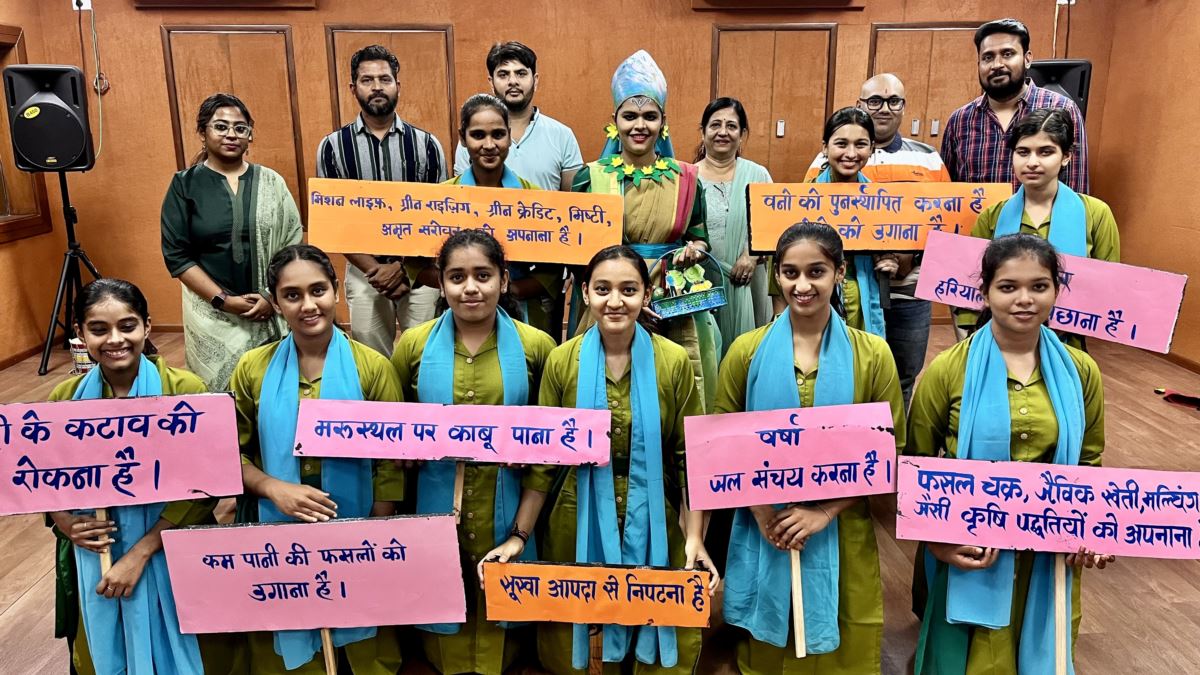 मिशन लाइफ़, ग्रीन राइज़िंग, ग्रीन क्रेडिट, मिष्टी,
अमृत सरोवर अपनाना है।
वनों को पुनर्स्थापित करना है
को उगाना है।
हरियाल
छाना है।
ी के कटाव को
रोकना है।
मरूस्थल पर काबू पाना है।
वर्षा
जल संचय करना है।
फसल चक्र, जैविक खेती, मल्चिंग
जैसी कृषि पद्धतियों को अपनाना
कम पानी की फसलों को
उगाना है।
सूखा आपदा से निपटना है